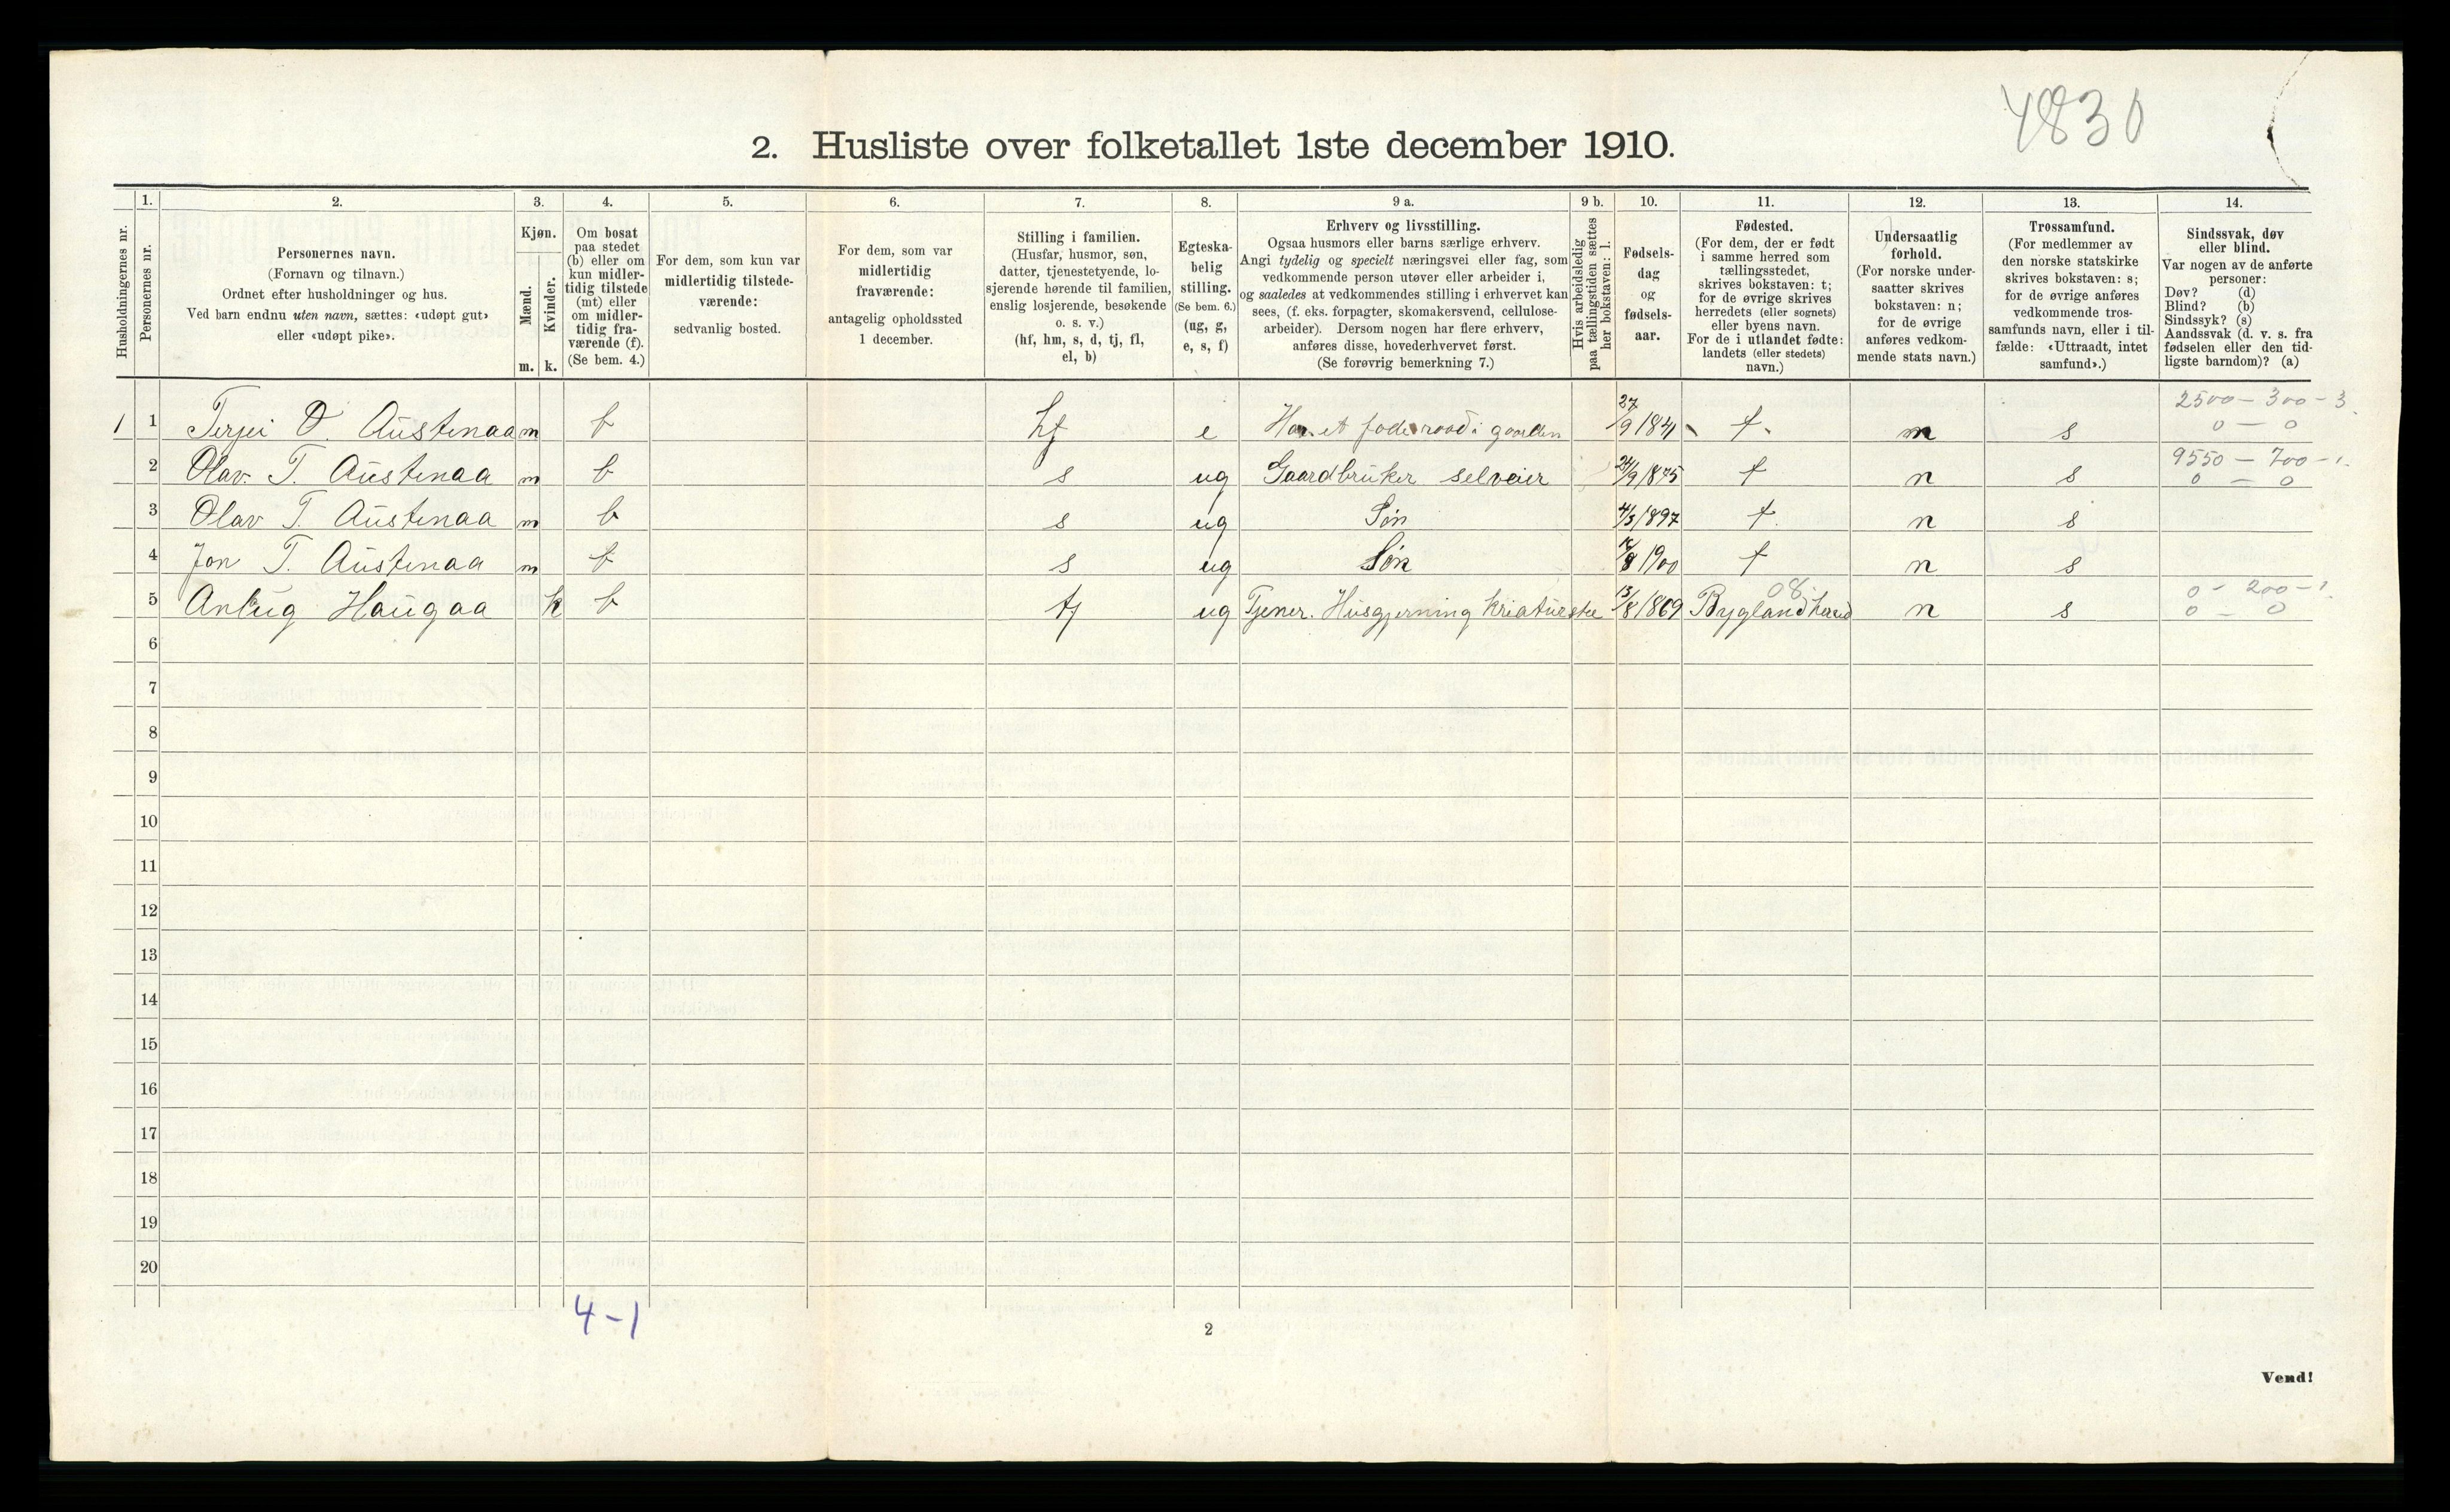 4830
2. Husliste over folketallet 1ste december 1910.
Husholdningernes nr.
1.
Personernes nr.
2.
Personernes navn.
(Fornavn og tilnavn.)
Ordnet efter husholdninger og hus.
Ved barn endnu uten navn, sættes: «udøpt gut»
eller «udøpt pike».
3.
Kjøn.
Mænd. Kvinder.
m. k.
4.
Om bosat
paa stedet
(b) eller om
kun midler-
tidig tilstede
(mt) eller
om midler-
tidig fra-
værende (f).
(Se bem. 4.)
5.
For dem, som kun var
midlertidig tilstede-
værende:
sedvanlig bosted.
6.
For dem, som var
midlertidig
fraværende:
antagelig opholdssted
1 december.
7.
Stilling i familien.
(Husfar, husmor, søn,
datter, tjenestetyende, lo-
sjerende hørende til familien,
enslig losjerende, besøkende
o. s. v.)
(hf, hm, s, d, tj, fl,
el, b)
8.
Egteska-
belig
stilling.
(Se bem. 6.)
(ug, g,
e, s, f)
9 a.
Erhverv og livsstilling.
Ogsaa husmors eller barns særlige erhverv.
Angi tydelig og specielt næringsvei eller fag, som
vedkommende person utøver eller arbeider i,
og saaledes at vedkommendes stilling i erhvervet kan
sees, (f. eks. forpagter, skomakersvend, cellulose-
arbeider). Dersom nogen har flere erhverv,
anføres disse, hovederhvervet først.
(Se forøvrig bemerkning 7.)
9 b.
Hvis arbeidsledig
paa tællingstiden sættes
her bokstaven: l.
10.
Fødsels-
dag
og
fødsels-
aar.
11.
Fødested.
(For dem, der er født
i samme herred som
tællingsstedet,
skrives bokstaven: t;
for de øvrige skrives
herredets (eller sognets)
eller byens navn.
For de i utlandet fødte:
landets (eller stedets)
navn.)
12.
Undersaatlig
forhold.
(For norske under-
saatter skrives
bokstaven: n;
for de øvrige
anføres vedkom-
mende stats navn.)
13.
Trossamfund.
(For medlemmer av
den norske statskirke
skrives bokstaven: s;
for de øvrige anføres
vedkommende tros-
samfunds navn, eller i til-
fælde: «Uttraadt, intet
samfund».)
14.
Sindssvak, døv
eller blind.
Var nogen av de anførte
personer:
Døv? (d)
Blind? (b)
Sindssyk? (s)
Aandssvak (d. v. s. fra
fødselen eller den tid-
ligste barndom)? (a)
2500 - 300 - 3.
1 1 Terjei O. Austenaa m b hf e Har et foderaad i gaarden 27/9 184 t. n s 0 - 0
9550 - 700 - 1.
2 Olav T. Austenaa m b s ug Gaardbruker selveier 24/9 1875 t n s 0 - 0
3 Olav T. Austenaa m b s ug Søn 4/3 1897 t. n s
4 Jon T. Austenaa m b s ug Søn 1900 t n s
08. 0 - 200 - 1.
5 Anlaug Haugaa k b tj ug Tjener. Husgjerning kriaturstel 13/8 1869 Bygland herred n s 0 - 0
6
7
8
9
10
11
12
13
14
15
16
17
18
19
20
4-1
2
Vend!